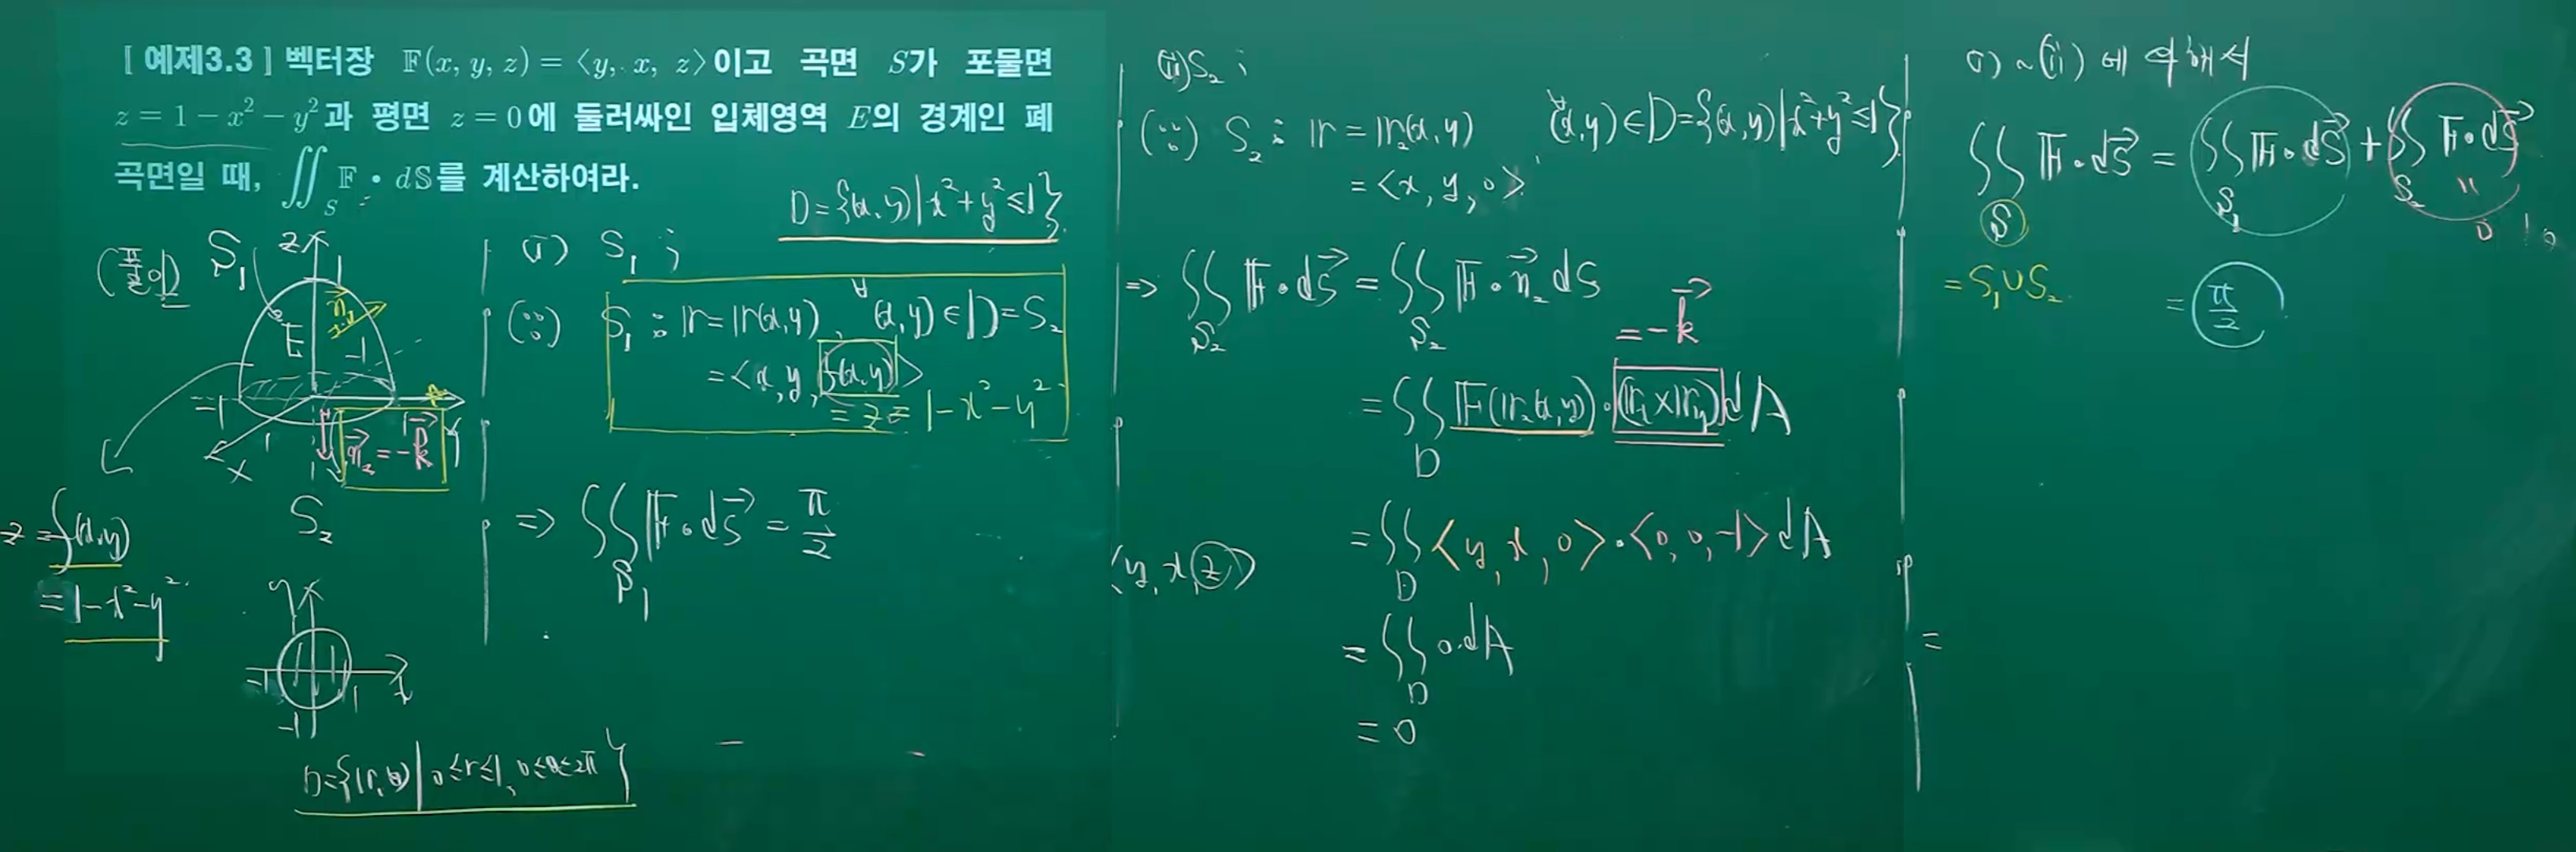 [ 예제3.3 ] 벡터장 𝔽(x, y, z) = ⟨y, x, z⟩이고 곡면 S가 포물면
z = 1 − x² − y²과 평면 z = 0에 둘러싸인 입체영역 E의 경계인 폐
곡면일 때, ∬_S 𝔽 • d𝕊를 계산하여라.
D={(x,y)|x²+y²≤1}
(풀이)
S₁
z
1
E
n₁
-1
-1
1
1
x
y
n₂ = -k
S₂
z = f(x,y)
= 1-x²-y²
y
-1
1
x
-1
D={(r,θ)|0≤r≤1, 0≤θ≤2π}
(i) S₁ ;
(∵) S₁ : r = r(x,y), ∀(x,y)∈D=S₂
= <x, y, f(x,y)>
= z = 1-x²-y²
⇒ ∬_S₁ F•dS = π/2
(ii) S₂ ;
(∵) S₂ : r = r₂(x,y), ∀(x,y)∈D={(x,y)|x²+y²≤1}
= <x, y, 0>
⇒ ∬_S₂ F•dS = ∬_S₂ F•n₂ dS
= -k
= ∬_D F(r₂(x,y))•(r_x×r_y) dA
<y, x, z>
= ∬_D <y, x, 0>•<0, 0, -1> dA
= ∬_D 0 dA
= 0
(i)~(ii)에 의해서
∬_S F•dS = ∬_S₁ F•dS + ∬_S₂ F•dS
= S₁∪S₂
"
0
= π/2
=